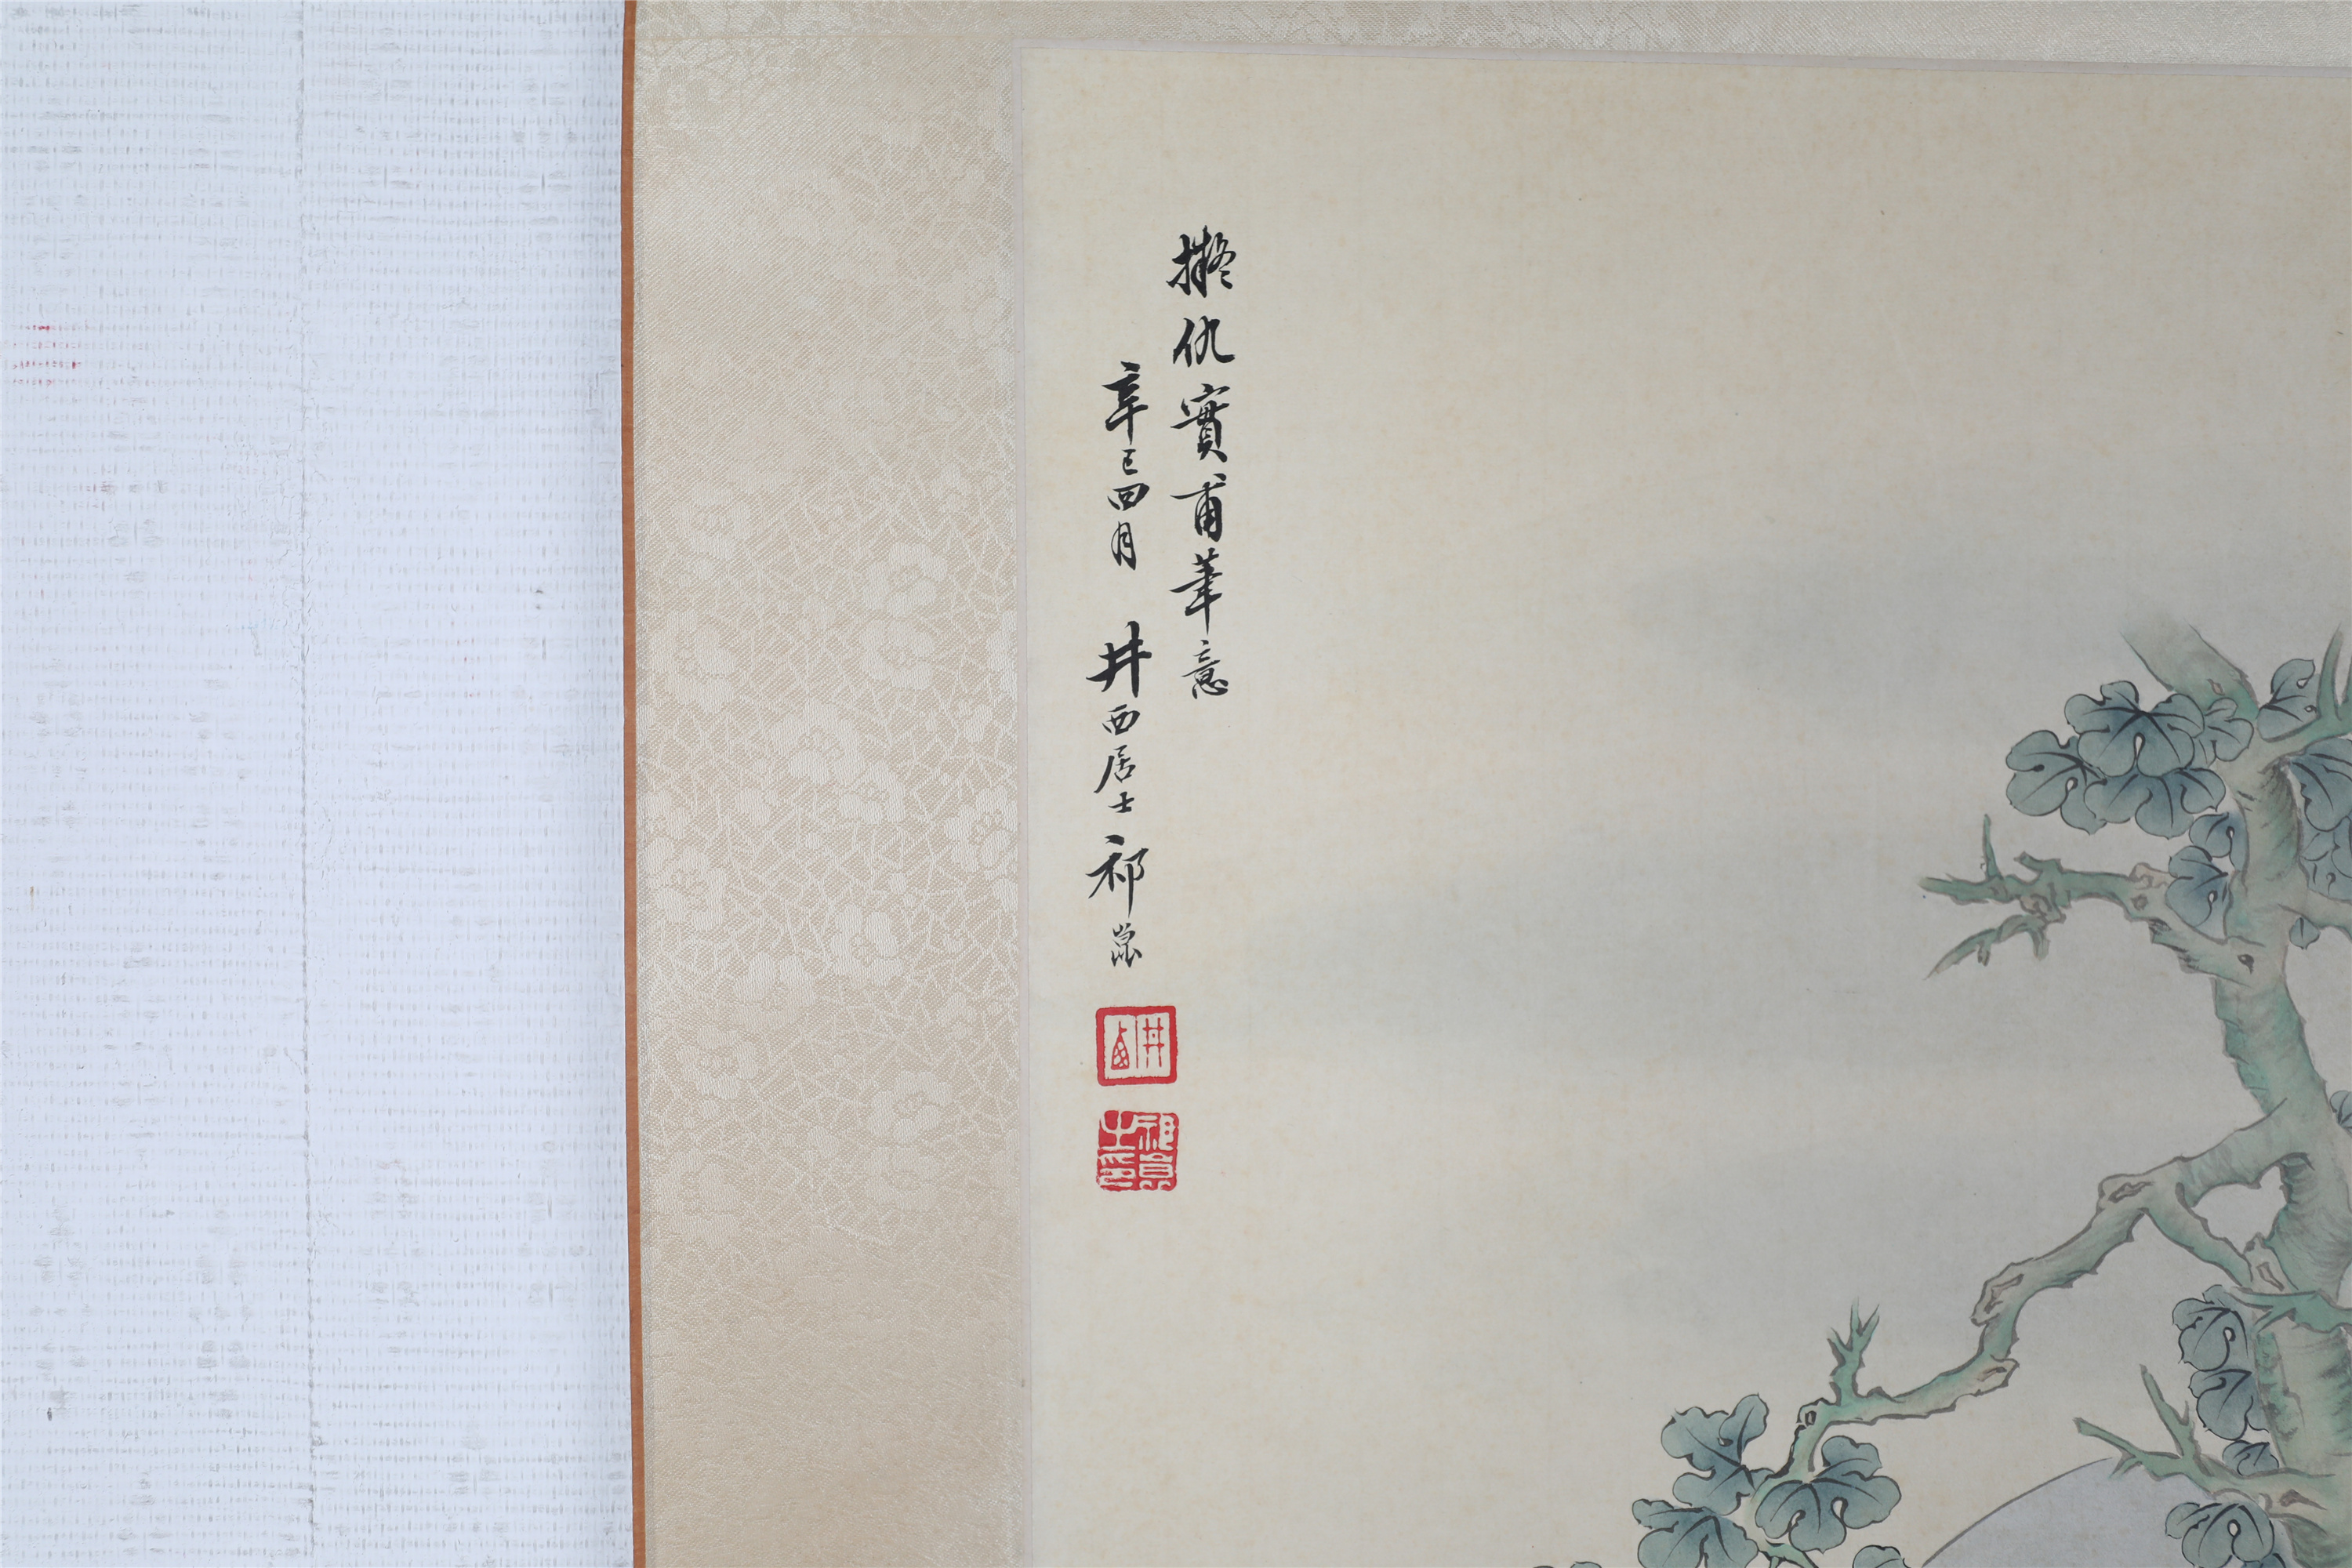 擬仇實甫筆意
辛巳四月 井西居士祁崑
井西
祁昆之印